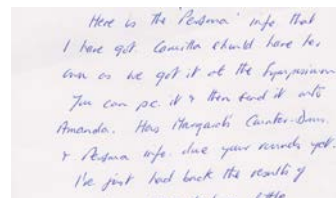 Here is the 'Persona' info that
I have got. Camilla should have her
own as we got it at the Symposium
You can pc. it & then send it onto
Amanda. Has Margaret's Counter-Dims.
& Persona info. done your rounds yet.
I've just had back the results of